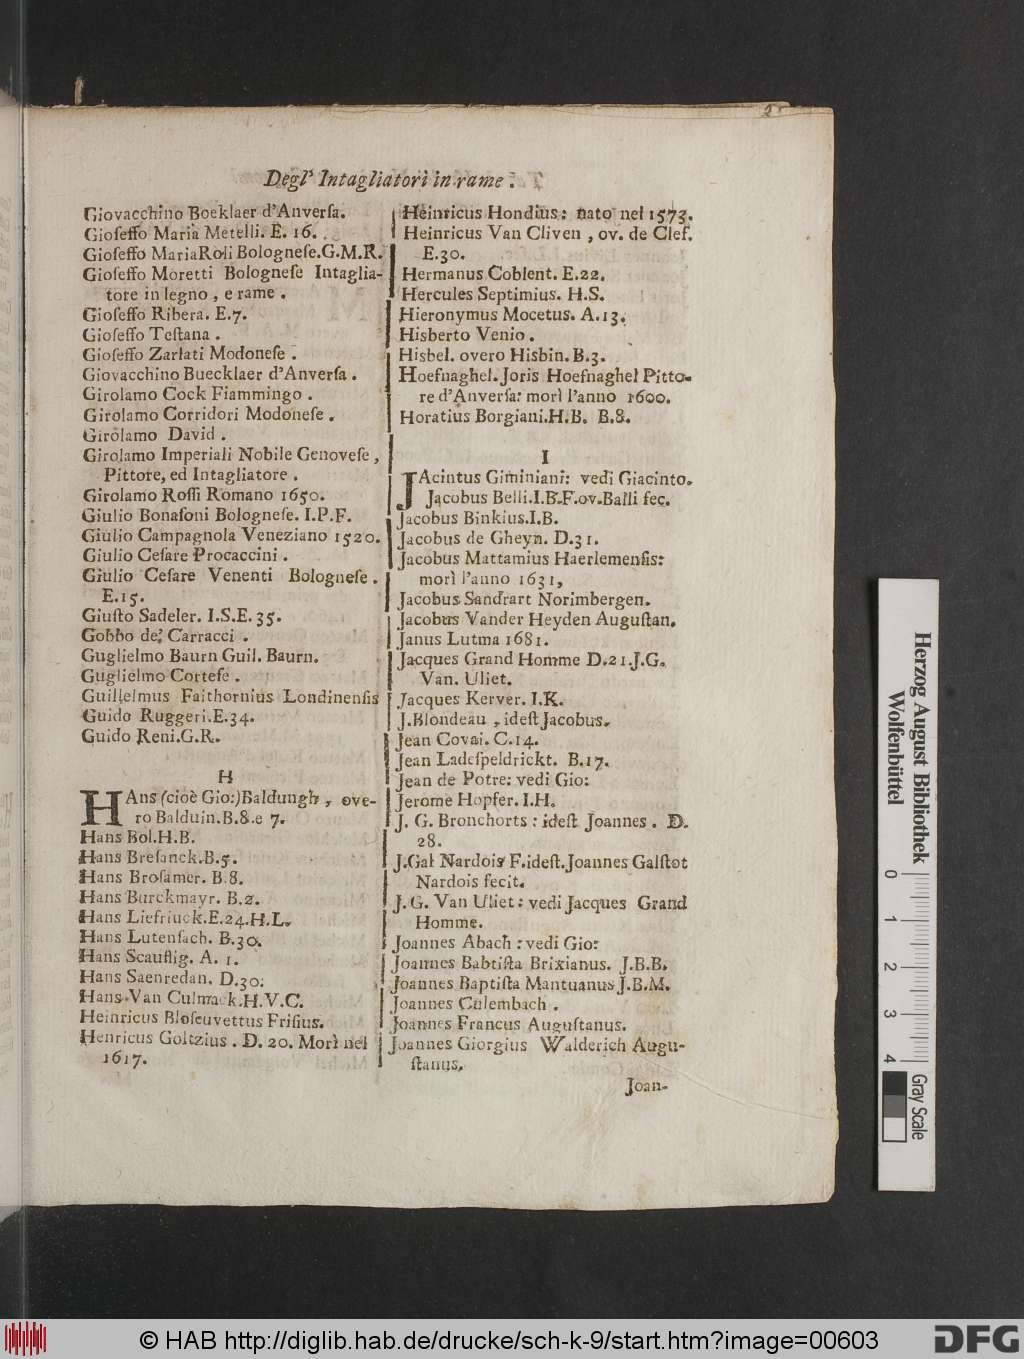 Degl' Intagliatori in rame.
Giovacchino Boeklaer d'Anverſa.
Gioſeffo Maria Metelli. E. 16.
Gioſeffo MariaRoli Bologneſe.G.M.R.
Gioſeffo Moretti Bologneſe Intaglia-
tore in legno, e rame.
Gioſeffo Ribera. E.7.
Gioſeffo Teſtana.
Gioſeffo Zarlati Modoneſe.
Giovacchino Buecklaer d'Anverſa.
Girolamo Cock Fiammingo.
Girolamo Corridori Modoneſe.
Girolamo David.
Girolamo Imperiali Nobile Genoveſe,
Pittore, ed Intagliatore.
Girolamo Roſſi Romano 1650.
Giulio Bonaſoni Bologneſe. I.P.F.
Giulio Campagnola Veneziano 1520.
Giulio Ceſare Procaccini.
Giulio Ceſare Venenti Bologneſe.
E.15.
Giuſto Sadeler. I.S.E.35.
Gobbo de' Carracci.
Guglielmo Baurn Guil. Baurn.
Guglielmo Corteſe.
Guillelmus Faithornius Londinenſis
Guido Ruggeri.E.34.
Guido Reni.G.R.
H
HAns (cioè Gio:)Baldungh, ove-
ro Balduin.B.8.e 7.
Hans Bol.H.B.
Hans Breſanck.B.5.
Hans Broſamer. B.8.
Hans Burckmayr. B.2.
Hans Liefriuck.E.24.H.L.
Hans Lutenſach. B.30.
Hans Scauflig. A. 1.
Hans Saenredan. D.30.
Hans Van Culmack.H.V.C.
Heinricus Bloſcuvettus Friſius.
Henricus Goltzius. D. 20. Morì nel
1617.
Heinricus Hondius: nato nel 1573.
Heinricus Van Cliven, ov. de Cleſ.
E.30.
Hermanus Coblent. E.22.
Hercules Septimius. H.S.
Hieronymus Mocetus. A.13.
Hisberto Venio.
Hisbel. overo Hisbin. B.3.
Hoefnaghel. Joris Hoefnaghel Pitto-
re d'Anverſa: morì l'anno 1600.
Horatius Borgiani.H.B. B.8.
I
JAcintus Giminiani: vedi Giacinto.
Jacobus Belli.I.B.F.ov.Balli fec.
Jacobus Binkius.I.B.
Jacobus de Gheyn. D.31.
Jacobus Mattamius Haerlemenſis:
morì l'anno 1631,
Jacobus Sandrart Norimbergen.
Jacobus Vander Heyden Auguſtan.
Janus Lutma 1681.
Jacques Grand Homme D.21.J.G.
Van. Uliet.
Jacques Kerver. I.K.
J.Blondeau, ideſt Jacobus.
Jean Covai. C.14.
Jean Ladeſpeldrickt. B.17.
Jean de Potre: vedi Gio:
Jerome Hopfer. I.H.
J. G. Bronchorts: ideſt Joannes. D.
28.
J.Gal Nardois F.ideſt.Joannes Galſtot
Nardois fecit.
J. G. Van Uliet: vedi Jacques Grand
Homme.
Joannes Abach: vedi Gio:
Joannes Babtiſta Brixianus. J.B.B.
Joannes Baptiſta Mantuanus J.B.M.
Joannes Culembach.
Joannes Francus Auguſtanus.
Joannes Giorgius Walderich Augu-
ſtanus.
Joan-
Herzog August Bibliothek
Wolfenbüttel
0 1 2 3 4
Gray Scale
© HAB http://diglib.hab.de/drucke/sch-k-9/start.htm?image=00603
DFG